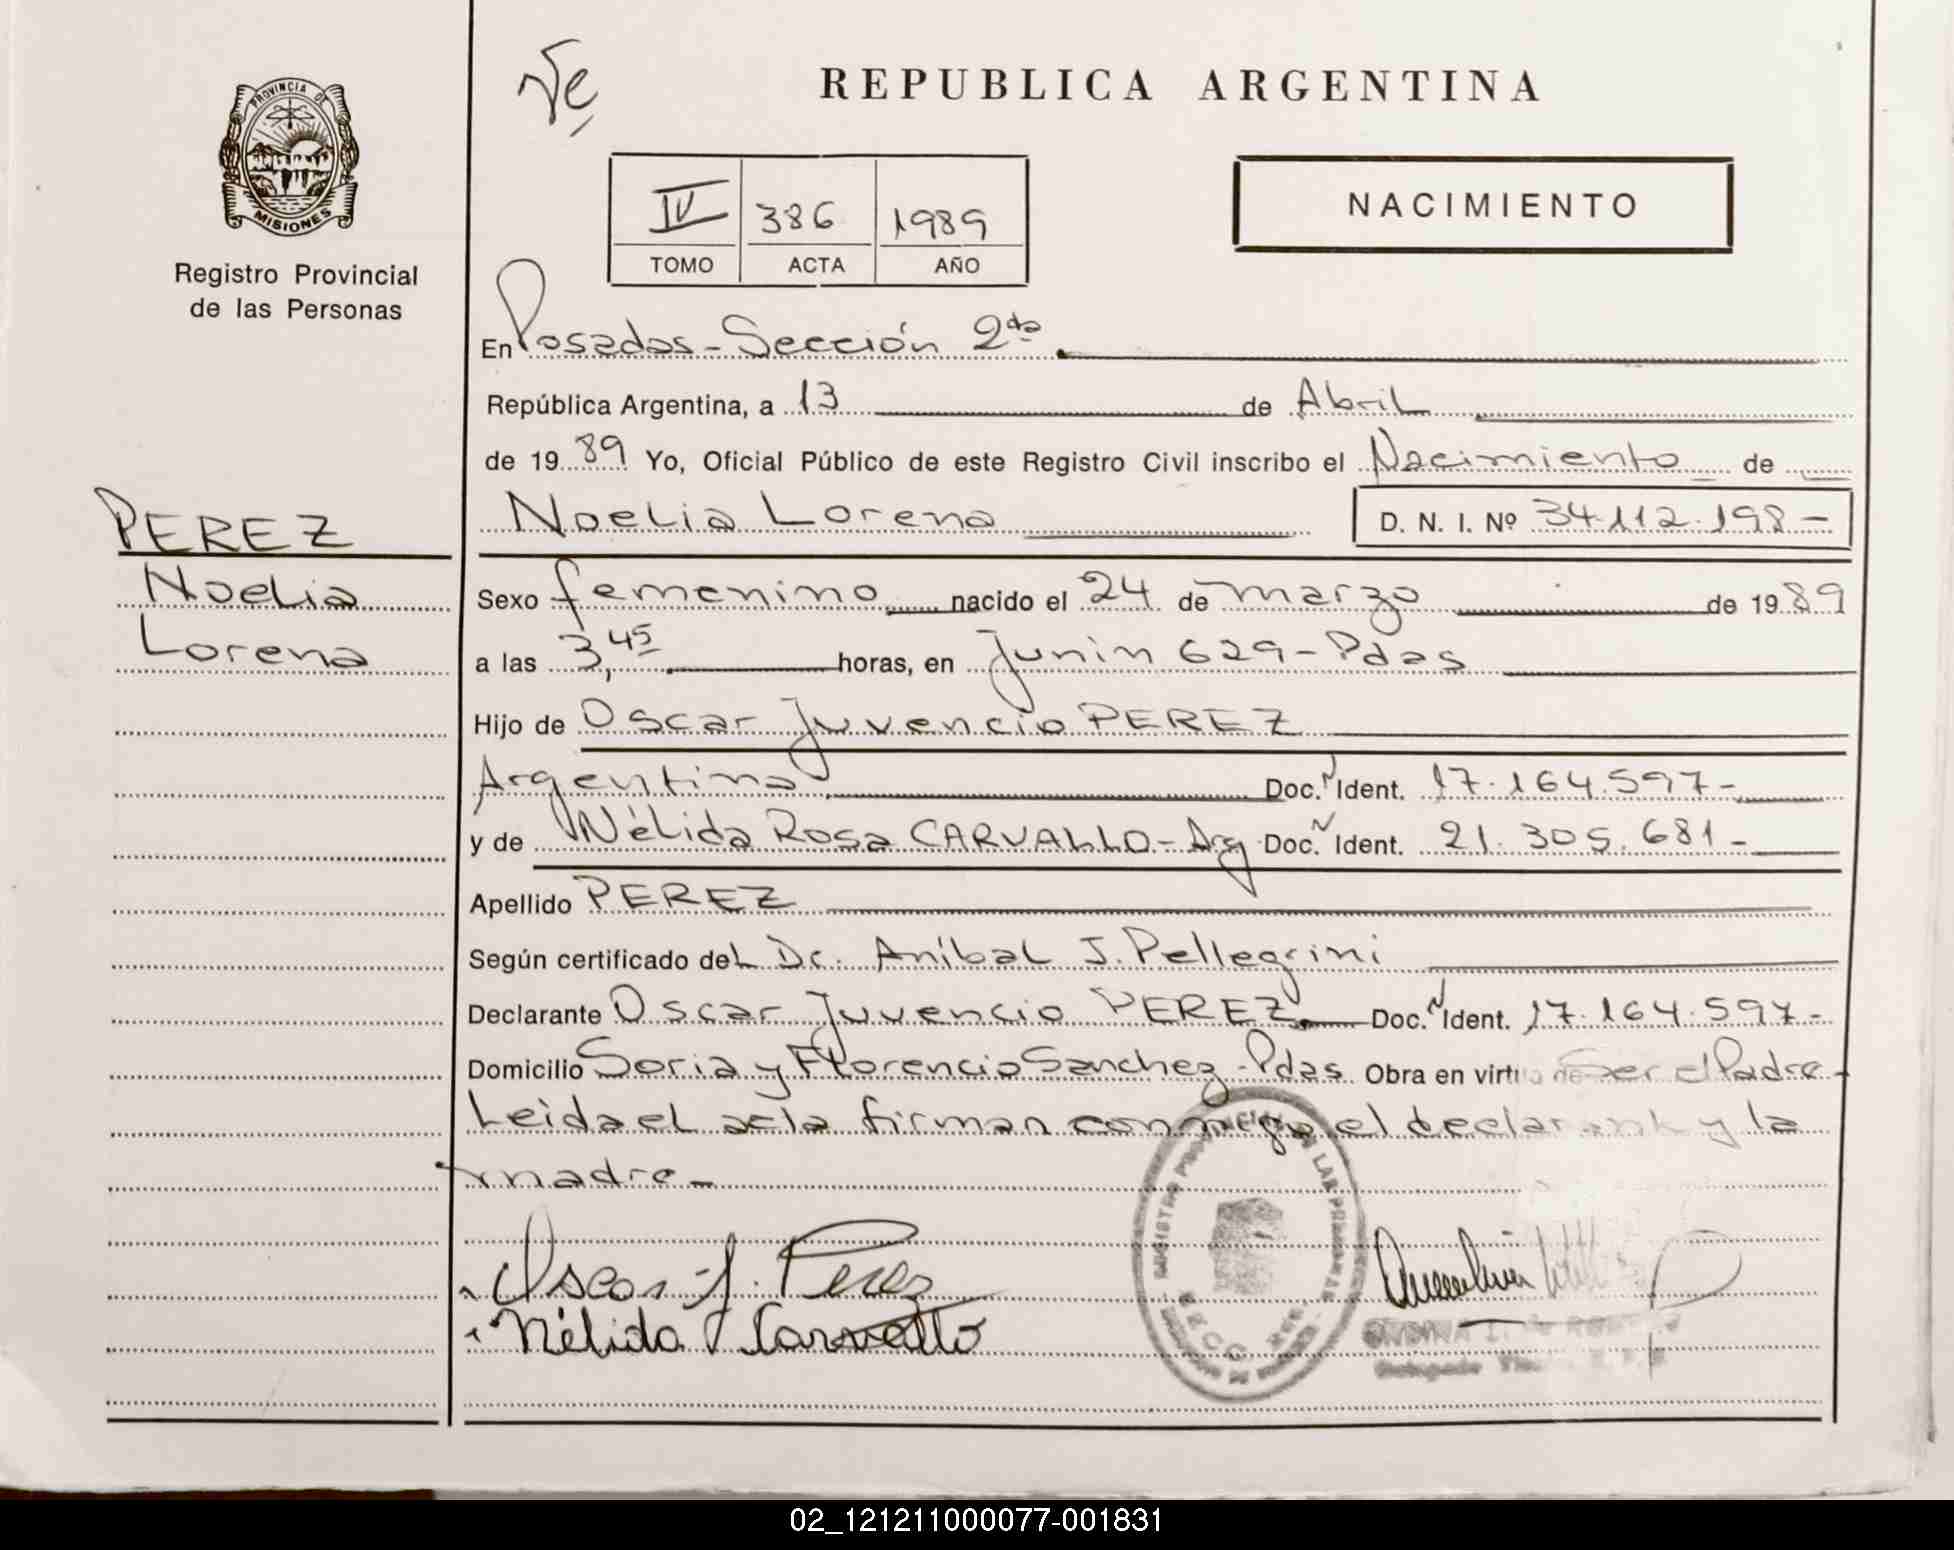 PROVINCIA DE
MISIONES
Registro Provincial
de las Personas
PEREZ
Noelia
Lorena
REPUBLICA ARGENTINA
NACIMIENTO
IV 386 1989
TOMO ACTA AÑO
En Posadas - Sección 2da
República Argentina, a 13 de Abril
de 1989 Yo, Oficial Público de este Registro Civil inscribo el Nacimiento de
Noelia Lorena D. N. I. Nº 34.112.198-
Sexo femenino nacido el 24 de marzo de 1989
a las 3,45 horas, en Junin 629 - Pdas
Hijo de Oscar Juvencio PEREZ
Argentina Doc. Ident. 17.164.597-
y de Nélida Rosa CARVALLO - Arg Doc. Ident. 21.305.681-
Apellido PEREZ
Según certificado del Dr. Aníbal J. Pellegrini
Declarante Oscar Juvencio PEREZ Doc. Ident. 17.164.597-
Domicilio Soria y Florencio Sanchez - Pdas Obra en virtud de Ser el Padre-
Leida el acta firman conmigo el declarante y la
madre-
Oscar J. Perez
Nélida Carvallo
02_121211000077-001831